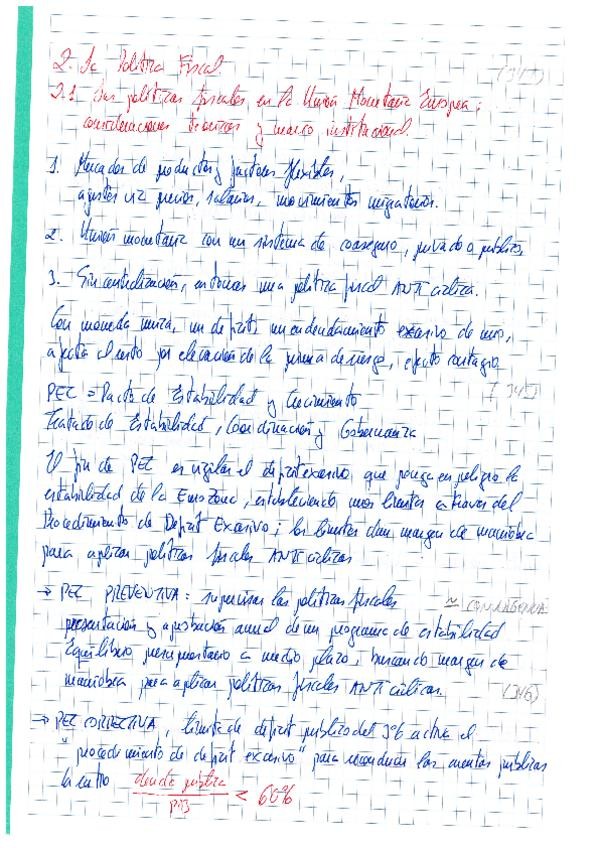 2. La Política Fiscal
(345)
2.1 Las políticas fiscales en la Unión Monetaria Europea:
consideraciones teóricas y marco institucional.
1. Mercados de productos y factores flexibles,
ajustes vía precios, salarios, movimientos migratorios.
2. Unión monetaria con un sistema de coaseguro, privado o público,
3. Sin centralización, entonces una política fiscal ANTIcíclica.
Con moneda única, un deficit, un endeudamiento excesivo de uno,
afecta al resto por elevación de la prima de riesgo, efecto contagio
PEC = Pacto de Estabilidad y Crecimiento
(345)
Tratado de Estabilidad, Coordinación y Gobernanza
El fin de PEC es vigilar el deficit excesivo que ponga en peligro la
estabilidad de la Eurozona, estableciendo unos límites a traves del
Procedimiento de Deficit Excesivo; los límites dan margen de maniobra
para aplicar políticas fiscales ANTIcíclicas
→ PEC PREVENTIVA: supervisar las políticas fiscales
presentación y aprobación anual de un programa de estabilidad
Equilibrio presupuestario a medio plazo, buscando margen de
maniobra para aplicar políticas fiscales ANTIcíclicas.
(346)
→ PEC CORRECTIVA, límite de deficit público del 3% activa el
"procedimiento de deficit excesivo" para reconducir las cuentas públicas
deuda pública / PIB < 60%